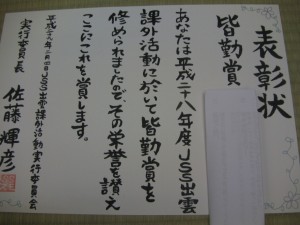 表彰状
皆勤賞
あなたは平成二十八年度JSS出雲
課外活動に於いて皆勤賞を
修められましたので、その栄誉を讃え
ここにこれを賞します。
平成二十八年二月四日JSS出雲課外活動実行委員会
実行委員長 佐藤輝彦